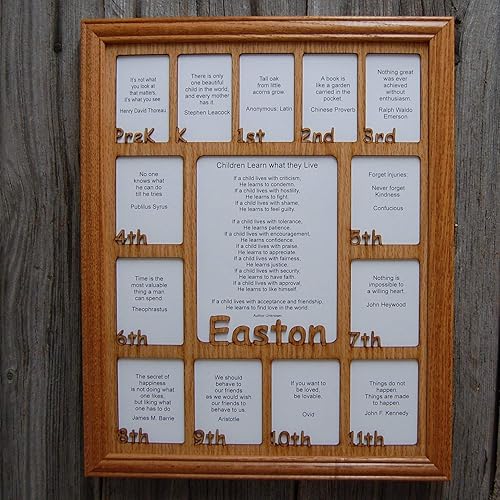 It's not what
you look at
that matters,
it's what you see
Henry David Thoreau
PreK
There is only
one beautiful
child in the world,
and every mother
has it.
Stephen Leacock
K
Tall oak
from little
acorns grow.
Anonymous: Latin
1st
A book is
like a
garden
carried in the
pocket.
Chinese Proverb
2nd
Nothing great
was ever
achieved
without
enthusiasm.
Ralph Waldo
Emerson
3rd
No one
knows what
he can do
till he tries
Publilius Syrus
4th
Children Learn what they Live
If a child lives with criticism,
He learns to condemn.
If a child lives with hostility,
He learns to fight.
If a child lives with shame,
He learns to feel guilty.
If a child lives with tolerance,
He learns patience.
If a child lives with encouragement,
He learns confidence.
If a child lives with praise,
He learns to appreciate.
If a child lives with fairness,
He learns justice.
If a child lives with security,
He learns to have faith.
If a child lives with approval,
He learns to like himself.
If a child lives with acceptance and friendship.
He learns to find love in the world
Author Unknown
Easton
Forget injuries:
Never forget
Kindness
Confucious
5th
Time is the
most valuable
thing a man
can spend.
Theophrastus
6th
Nothing is
impossible to
a willing heart.
John Heywood
7th
The secret of
happiness
is not doing what
one likes,
but liking what
one has to do
James M. Barrie
8th
We should
behave to
our friends
as we would wish
our friends to
behave to us.
Aristotle
9th
If you want to
be loved,
be lovable.
Ovid
10th
Things do not
happen.
Things are
made to
happen.
John F. Kennedy
11th